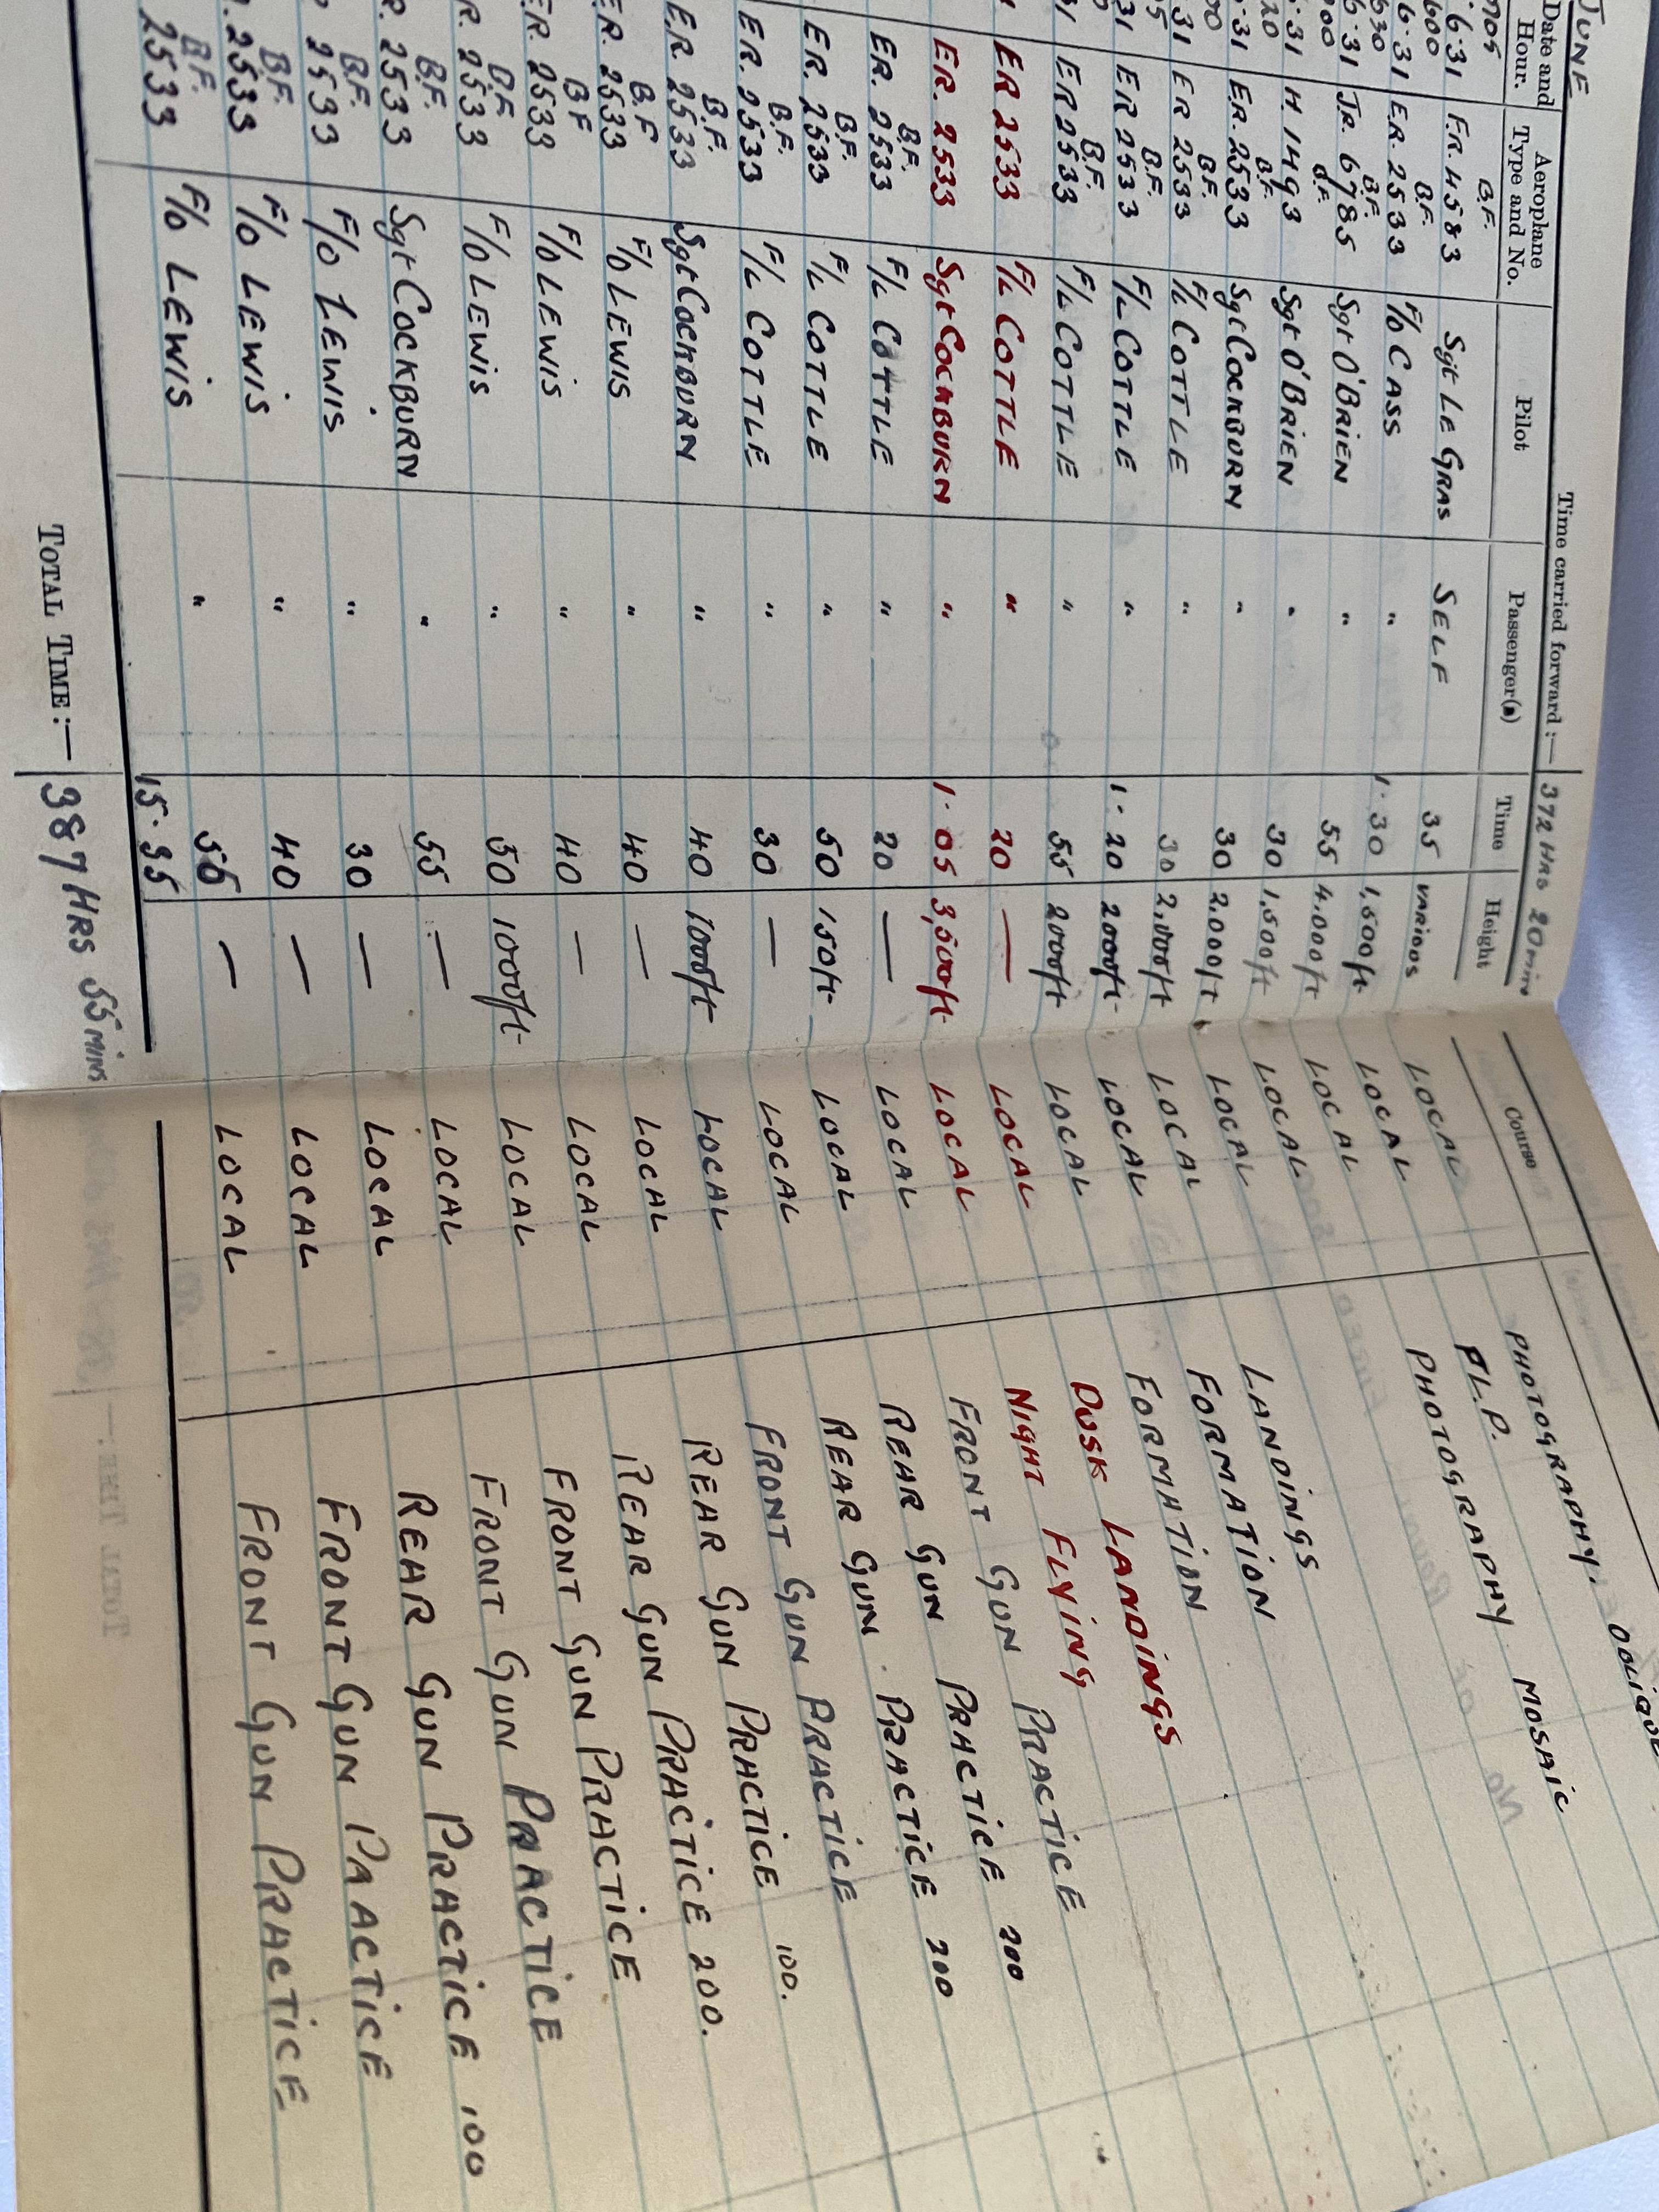 JUNE Time carried forward :— 372 HRS 20 mins
Date and Hour. Aeroplane Type and No. Pilot Passenger(s) Time Height Course
6·31 B.F. FR.4583 Sgt LE GRAS SELF 35 VARIOUS LOCAL PHOTOGRAPHY. OBLIQUE
6·31 B.F. ER.2533 F/O CASS " 1·30 1,500ft LOCAL P.L.P.
6·31 B.F. JR.6785 Sgt O'BRIEN " 55 4,000ft LOCAL PHOTOGRAPHY MOSAIC
·31 B.F. H1493 Sgt O'BRIEN " 30 1,500ft LOCAL
·31 B.F. ER.2533 Sgt COCKBURN " 30 2,000ft LOCAL
31 B.F. ER 2533 F/L COTTLE " 30 2,000ft LOCAL LANDINGS
31 B.F. ER 2533 F/L COTTLE " 1·20 2000ft LOCAL FORMATION
31 B.F. ER 2533 F/L COTTLE " 55 2000ft LOCAL FORMATION
ER 2533 F/L COTTLE " 20 — LOCAL DUSK LANDINGS
ER. 2533 Sgt COCKBURN " 1·05 3,500ft LOCAL NIGHT FLYING
B.F. ER. 2533 F/L COTTLE " 20 — LOCAL FRONT GUN PRACTICE
B.F. ER. 2533 F/L COTTLE " 50 150ft LOCAL REAR GUN PRACTICE 200
B.F. ER. 2533 F/L COTTLE " 30 — LOCAL REAR GUN PRACTICE 200
B.F. ER. 2533 Sgt COCKBURN " 40 1000ft LOCAL FRONT GUN PRACTICE
B.F. ER. 2533 F/O LEWIS " 40 — LOCAL REAR GUN PRACTICE 100.
B.F ER. 2533 F/O LEWIS " 40 — LOCAL REAR GUN PRACTICE 200.
B.F R. 2533 F/O LEWIS " 50 1000ft LOCAL FRONT GUN PRACTICE
B.F. R. 2533 Sgt COCKBURN " 55 — LOCAL FRONT GUN PRACTICE
B.F. 2533 F/O LEWIS " 30 — LOCAL REAR GUN PRACTICE 100
B.F. 2533 F/O LEWIS " 40 — LOCAL FRONT GUN PRACTICE
B.F. 2533 F/O LEWIS " 55 — LOCAL FRONT GUN PRACTICE
15·35
TOTAL TIME:— 387 HRS 55 MINS